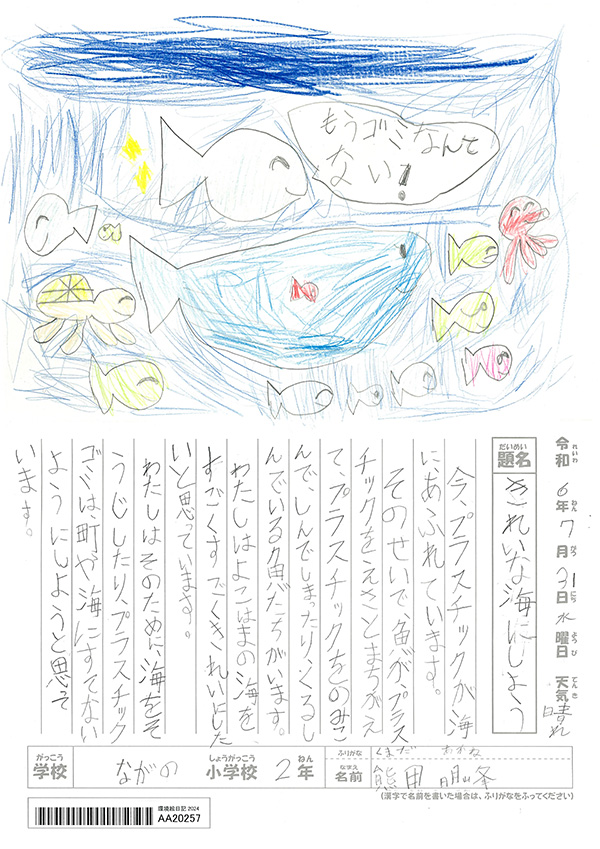 もうゴミなんて
ない!
令和6年7月31日水曜日 天気 晴れ
れいわ ねん がつ にち ようび てんき
だいめい
題名
きれいな海にしよう
今、プラスチックが海
に、あふれています。
そのせいで、魚が、プラス
チックをえさとまちがえ
て、プラスチックをのみこ
んで、しんでしまったり、くるし
んでいる魚たちがいます。
わたしはよこはまの海を
すごくすごくきれいにした
いと思っています。
わたしはそのために、海をそ
うじしたり、プラスチック
ゴミは、町や海にすてない
ようにしようと思って
います。
がっこう
学校
ながの
しょうがっこう
小学校
2年
ねん
ふりがな
くまだ
なまえ
名前
熊田
(漢字で名前を書いた場合は、ふりがなをふってください)
環境絵日記 2024
AA20257